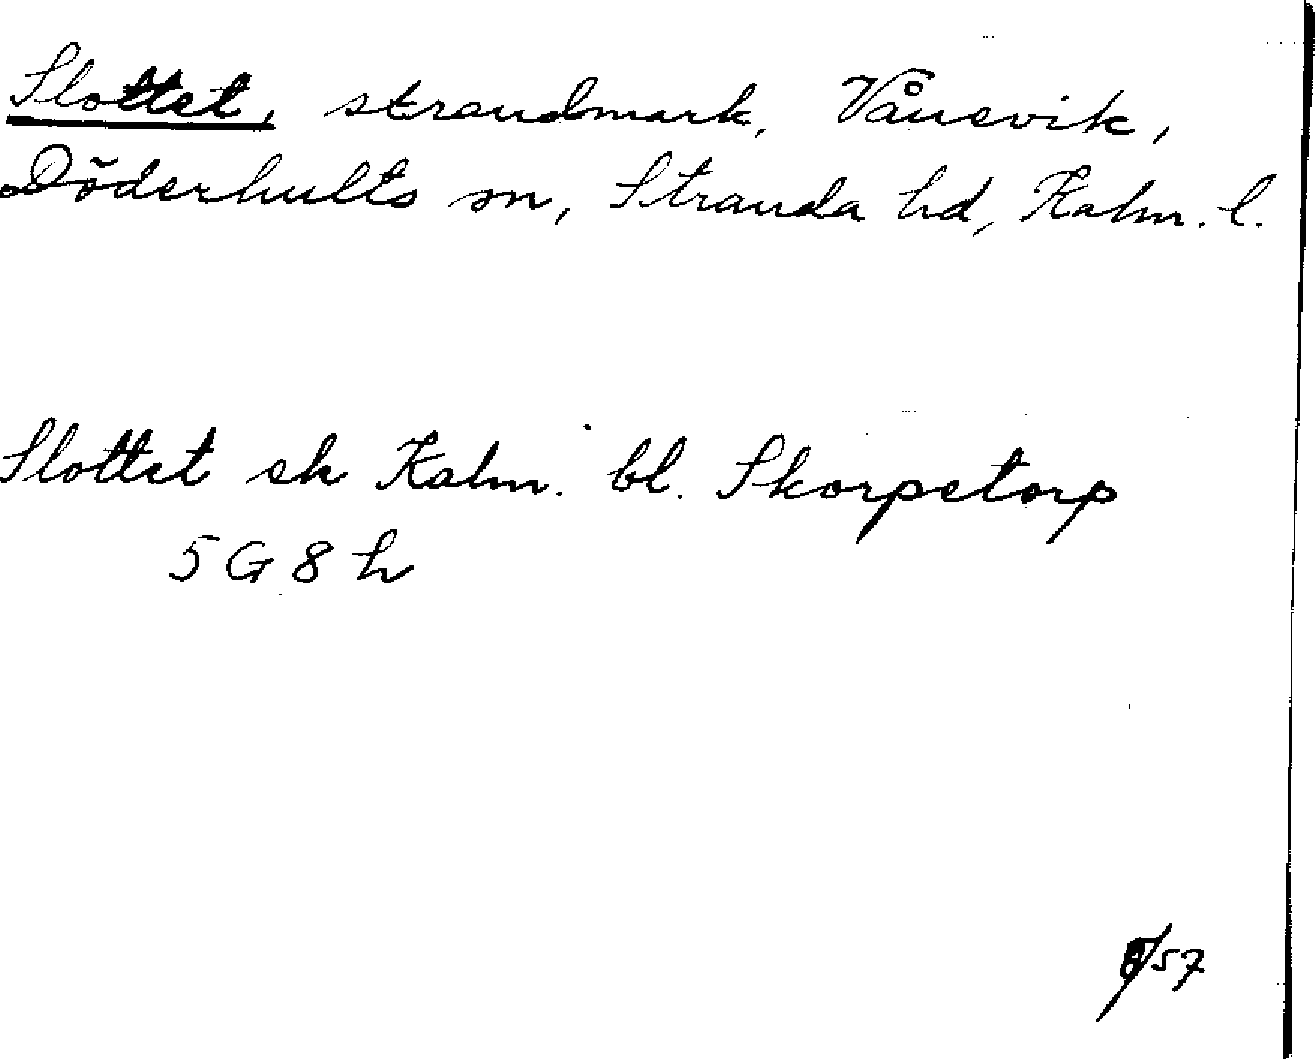 Slottet, strandmark, Vånevik,
Döderhults sn, Stranda hd, Kalm. l.
Slottet ek Kalm. bl. Skorpetorp
5 G 8 h
/57